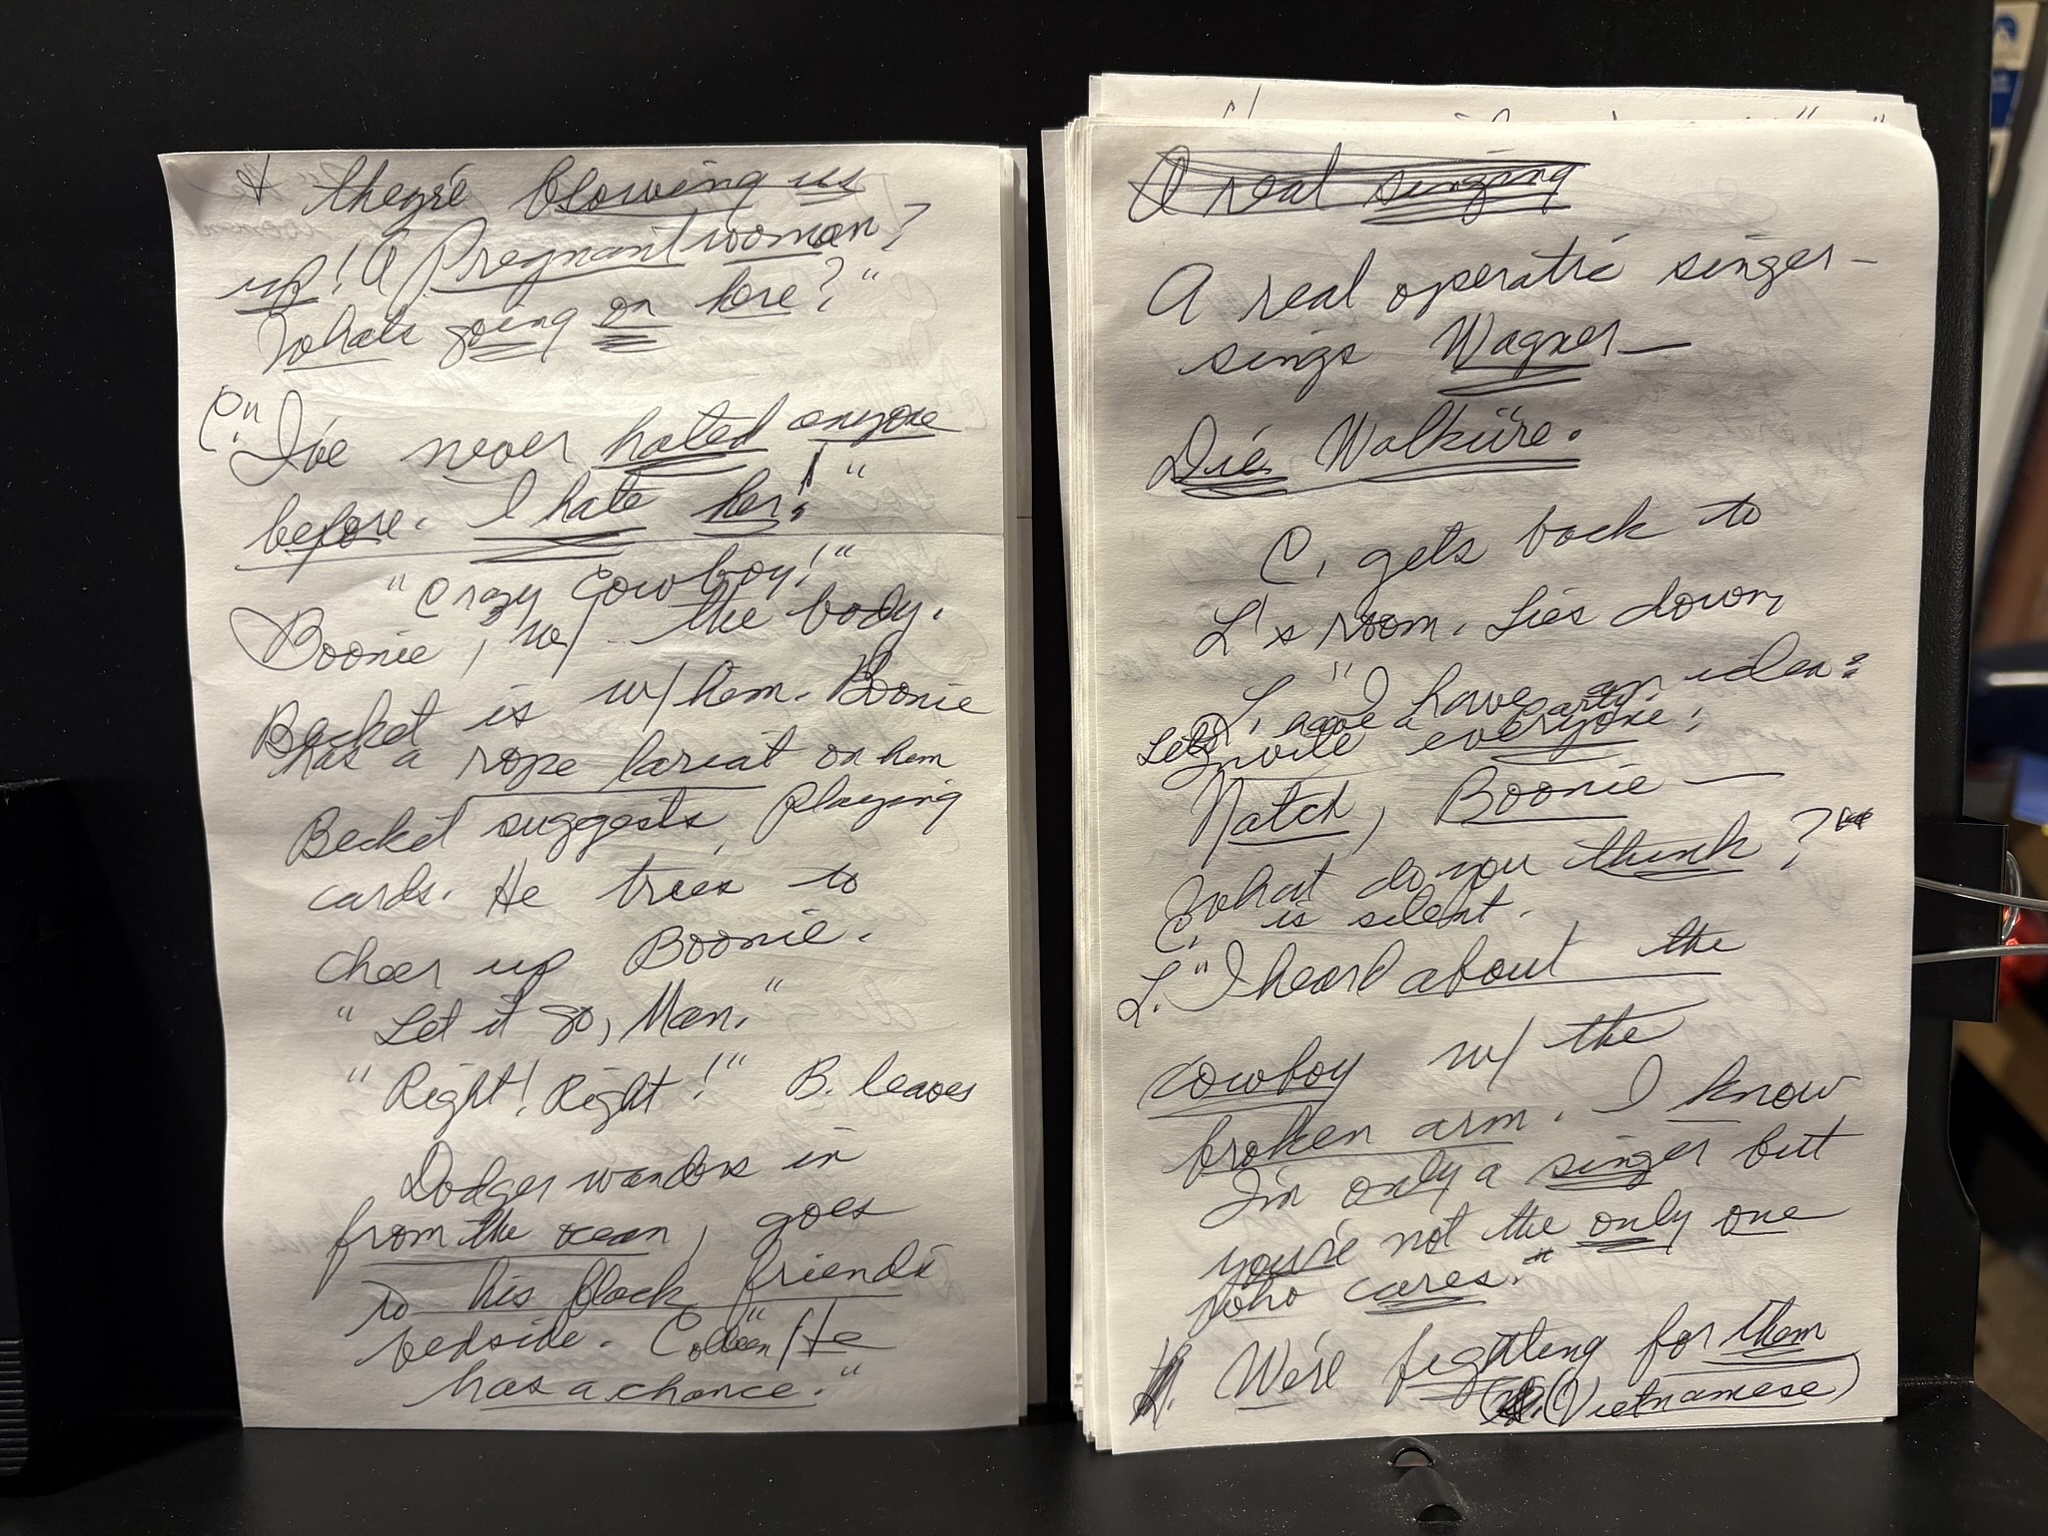 & they're blowing us
up! A Pregnant woman?
Whats going on here?"
C. "I've never hated anyone
before. I hate her!"
"Crazy Cowboy!"
Boonie, w/ the body.
Becket is w/ hem. Boonie
has a rope lariat on hem
Becket suggests, playing
cards. He tries to
cheer up Boonie.
"Let it go, Man."
"Right! Right!" B. leaves
Dodger wanders in
from the ocean, goes
to his black friends
bedside. Colleen "He
has a chance."
A real singing
A real operatic singer –
sings Wagner —
Die Walküre.
C. gets back to
L's room. Lies down,
L. "I have an idea:
Let's have a party.
Invite everyone!
Natch, Boonie —
What do you think?"
C. is silent.
L. "I heard about the
cowboy w/ the
broken arm. I know
I'm only a singer but
you're not the only one
who cares."
We're fighting for them
(Vietnamese)